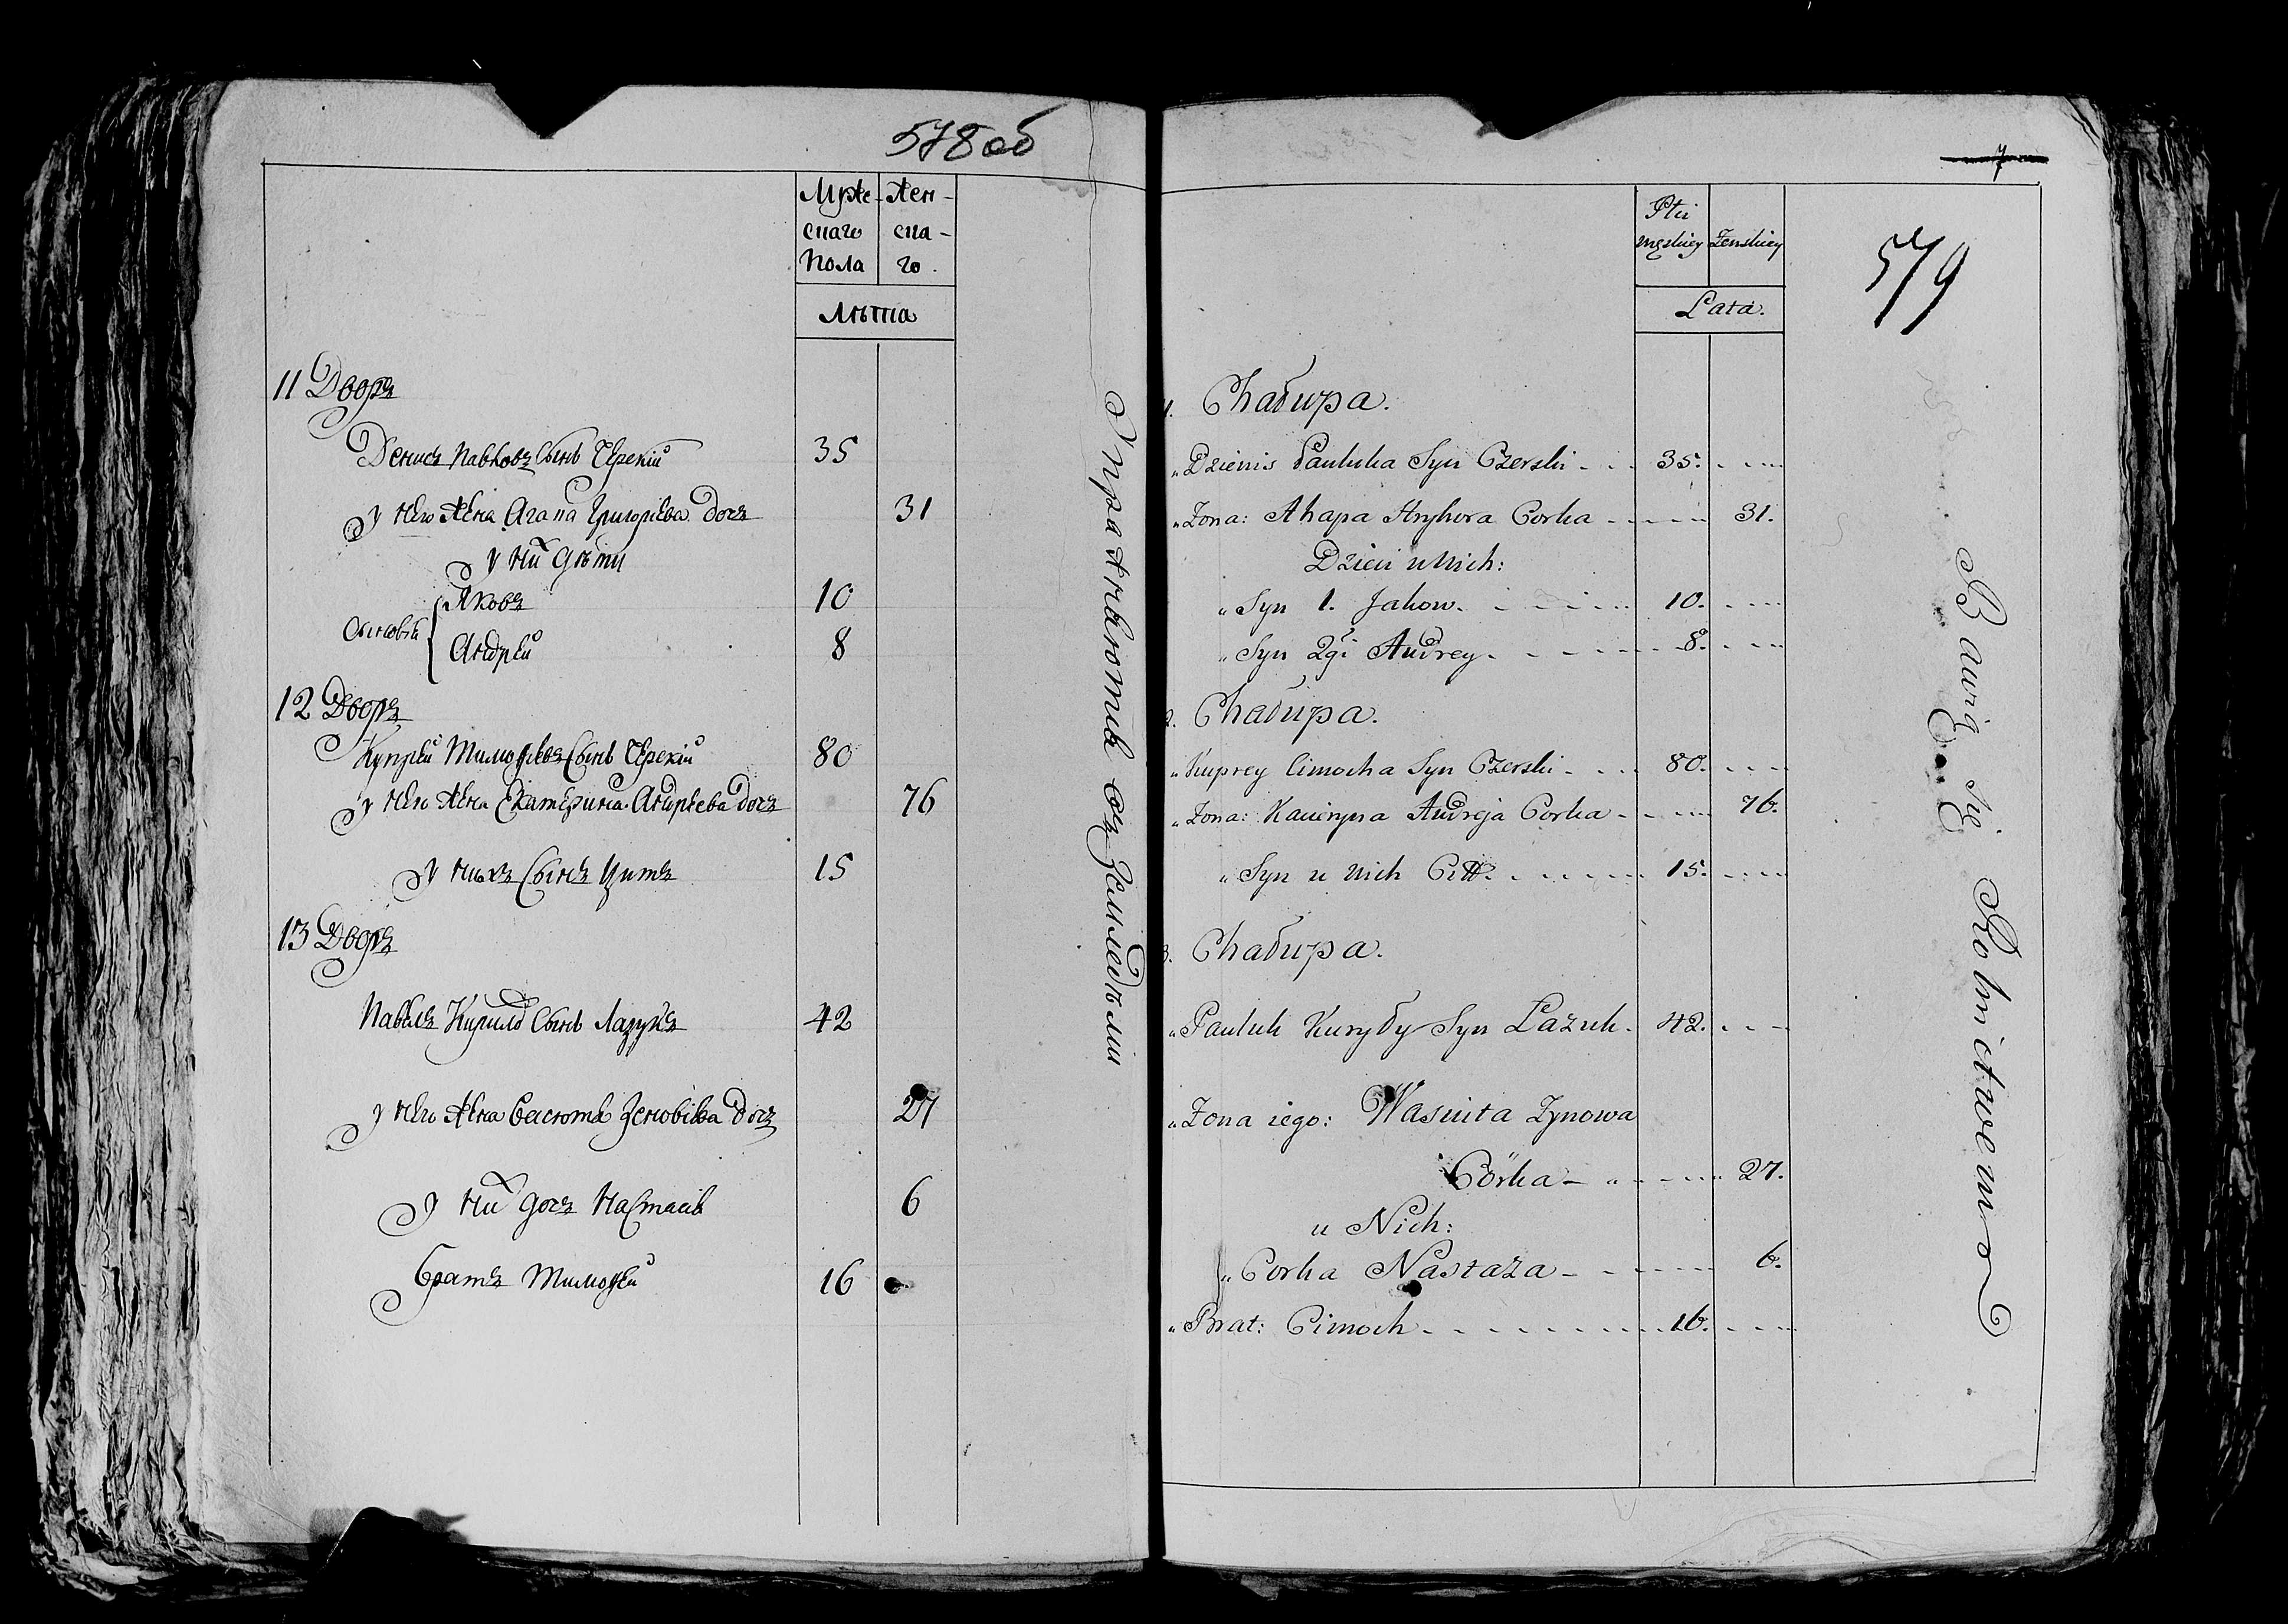 578 об
Муже- Жен-
скаго ска-
Пола го.
Лѣта
11 Дворъ
Денисъ Павловъ Сынъ Черскій 35
У него Жена Агапа Григорьева дочъ 31
у них дѣти
Сыновья
Яковъ 10
Андрей 8
12 Дворъ
Купрей Тимофеевъ Сынъ Черскій 80
у него Жена Екатерина Андреева дочъ 76
у нихъ Сынъ Цитъ 15
13 Дворъ
Павелъ Кирило Сынъ Лазукъ 42
у него Жена дочъ 27
у них дочъ Настасія 6
братъ Тимофей 16
Упражняются Земледелии
7
579
Płci
męskiey Żenskiey
Lata.
Chałupa.
„Dzienis Pauluka Syn Czerski 35.
„Zona: Ahapa Hryhora Corka 31.
Dzieci u Nich:
„Syn 1. Jakow. 10.
„Syn 2gi Audrey. 8.
Chałupa.
„Kuprey Cimocha Syn Czerski 80.
„Zona: Kacieryna Audreja Corka 76.
„Syn u Nich Citt. 15.
Chałupa.
„Pauluk Kuryły Syn Lazuk. 42.
„Zona iego: Wasiuta Zynowa
Córka 27.
u Nich:
„Corka Nastaza 6.
„Brat: Cimoch 16.
Bawią się Rolnictwem